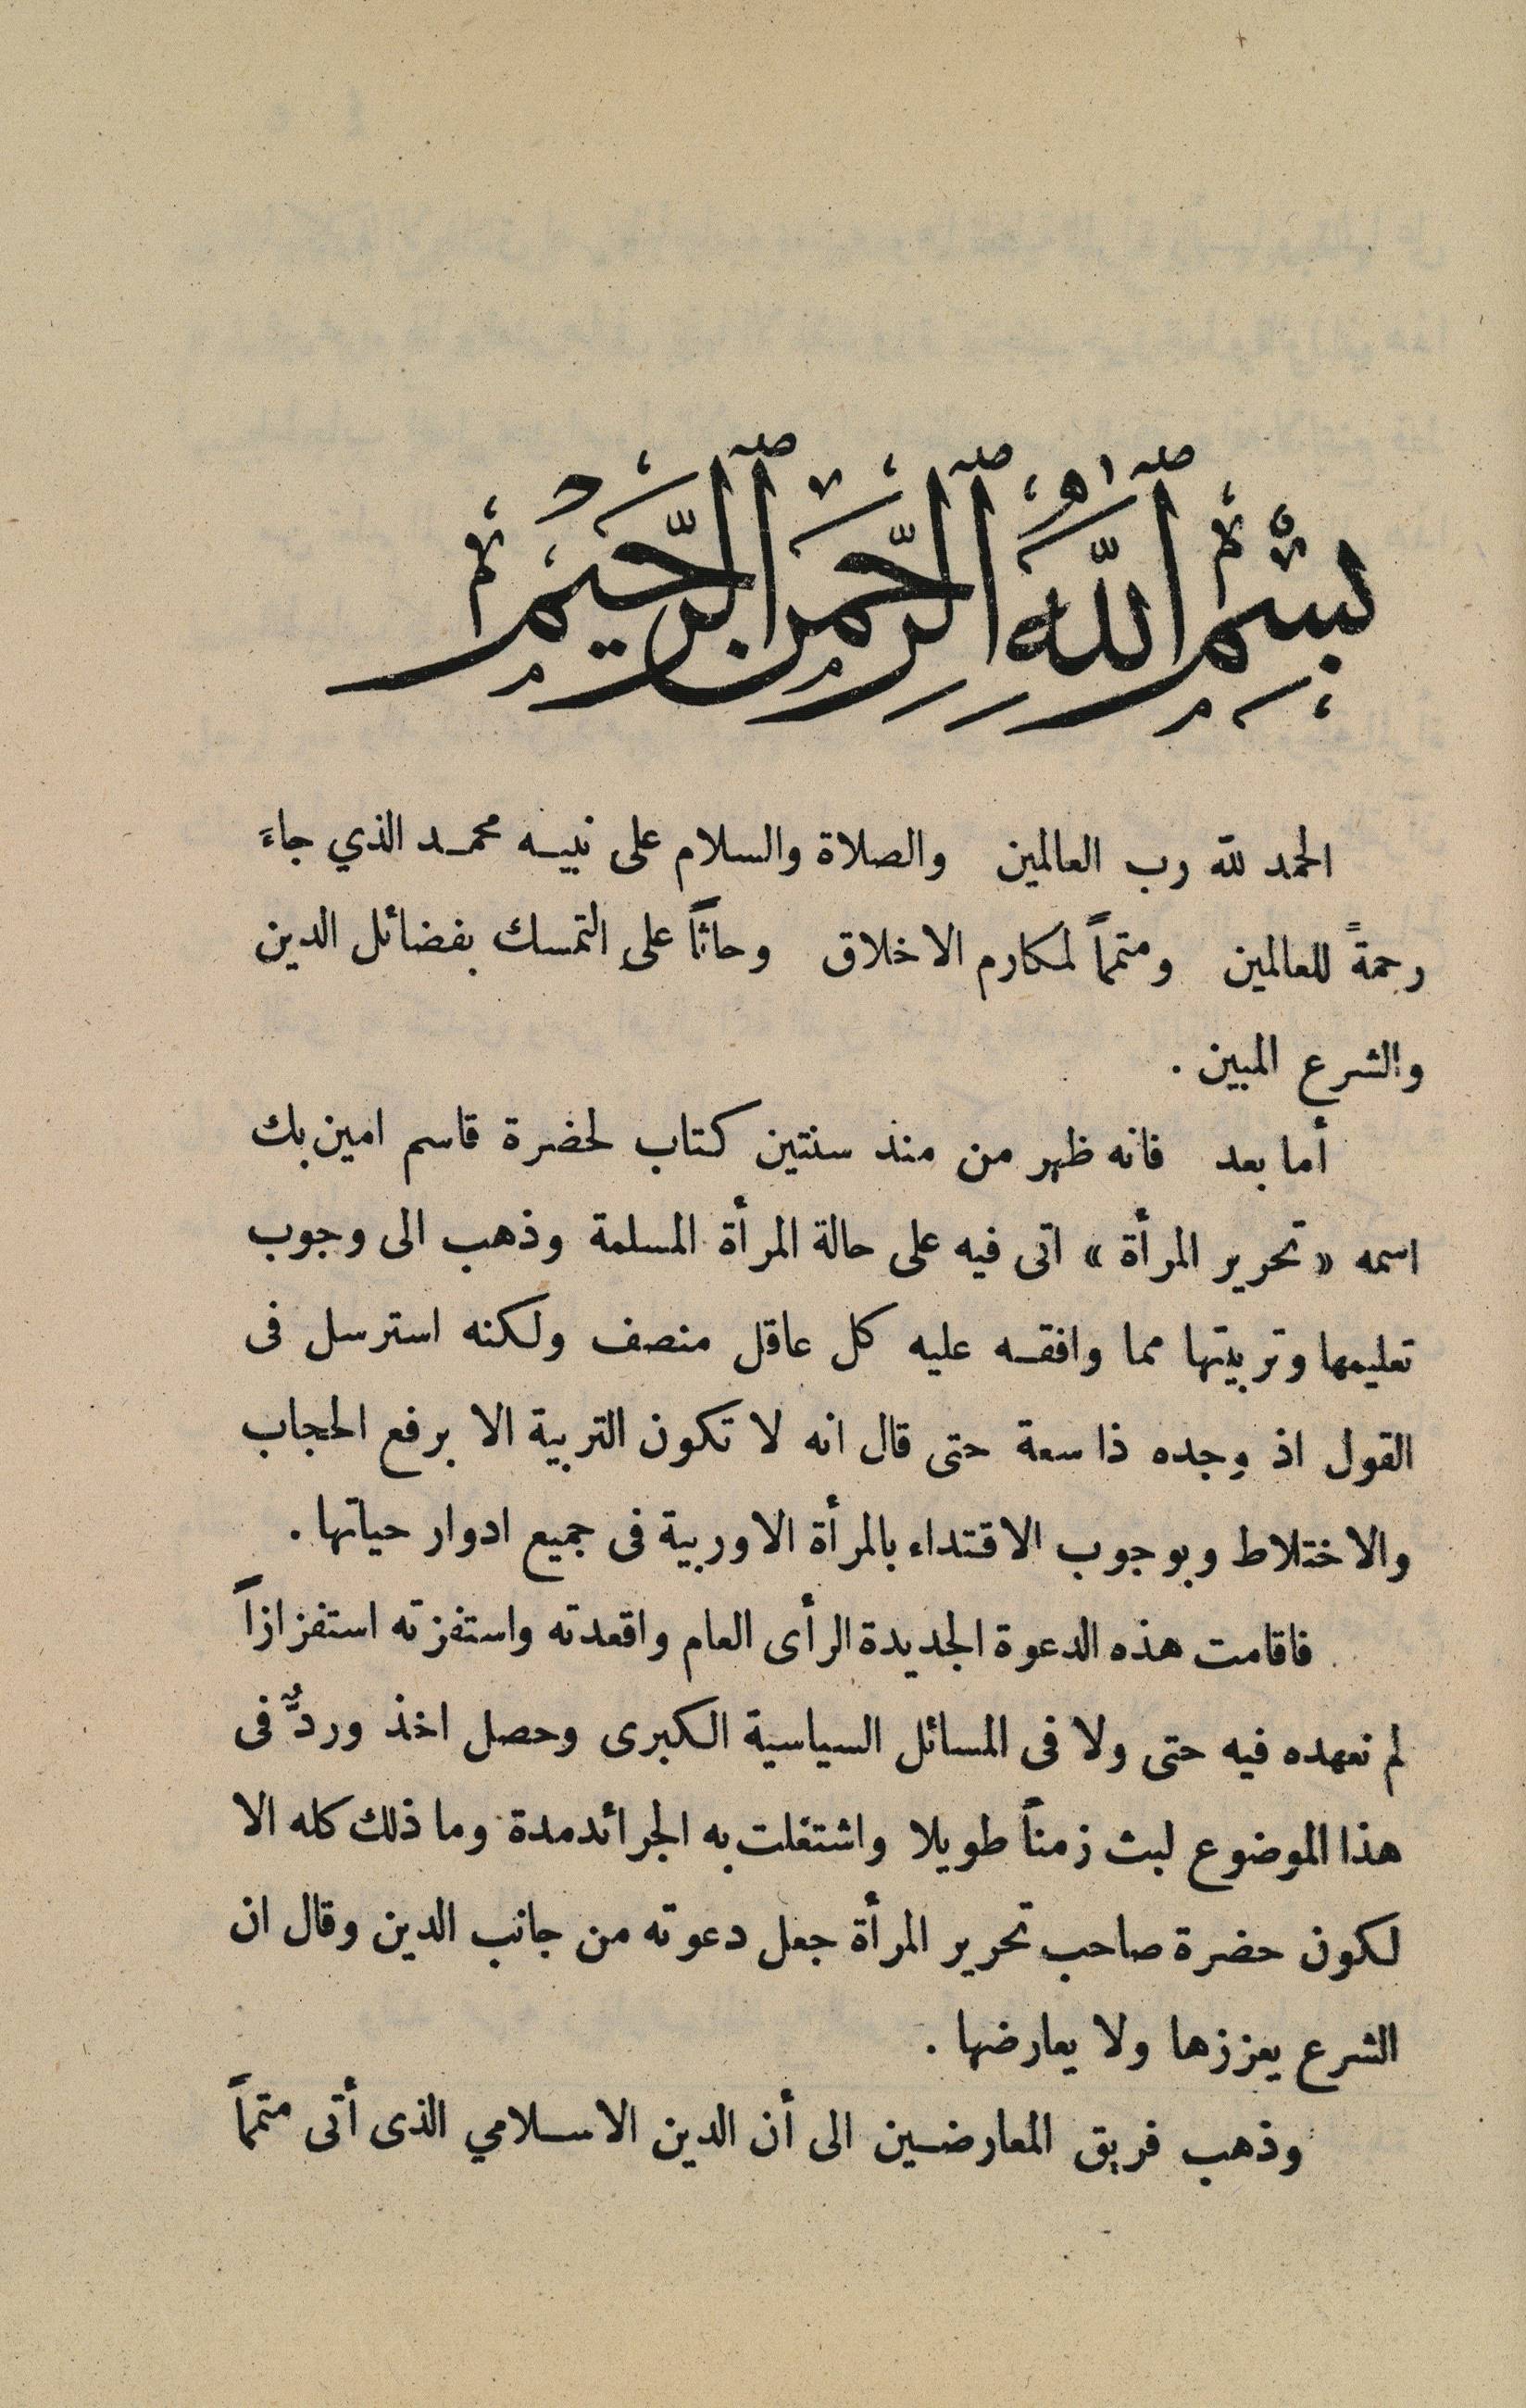 بسم الله الرحمن الرحيم
الحمد لله رب العالمين والصلاة والسلام على نبيه محمد الذي جاءَ
رحمةً للعالمين ومتمماً لمكارم الاخلاق وحاثاً على التمسك بفضائل الدين
والشرع المبين .
أما بعد فانه ظهر من منذ سنتين كتاب لحضرة قاسم امين بك
اسمه « تحرير المرأة » اتى فيه على حالة المرأة المسلمة وذهب الى وجوب
تعليمها وتربيتها مما وافقه عليه كل عاقل منصف ولكنه استرسل فى
القول اذ وجده ذا سعة حتى قال انه لا تكون التربية الا برفع الحجاب
والاختلاط وبوجوب الاقتداء بالمرأة الاوربية فى جميع ادوار حياتها .
فاقامت هذه الدعوة الجديدة الرأى العام واقعدته واستفزته استفزازاً
لم نعهده فيه حتى ولا فى المسائل السياسية الكبرى وحصل اخذ وردٌّ فى
هذا الموضوع لبث زمناً طويلا واشتغلت به الجرائد مدة وما ذلك كله الا
لكون حضرة صاحب تحرير المرأة جعل دعوته من جانب الدين وقال ان
الشرع يعززها ولا يعارضها .
وذهب فريق المعارضين الى أن الدين الاسلامي الذى أتى متمماً